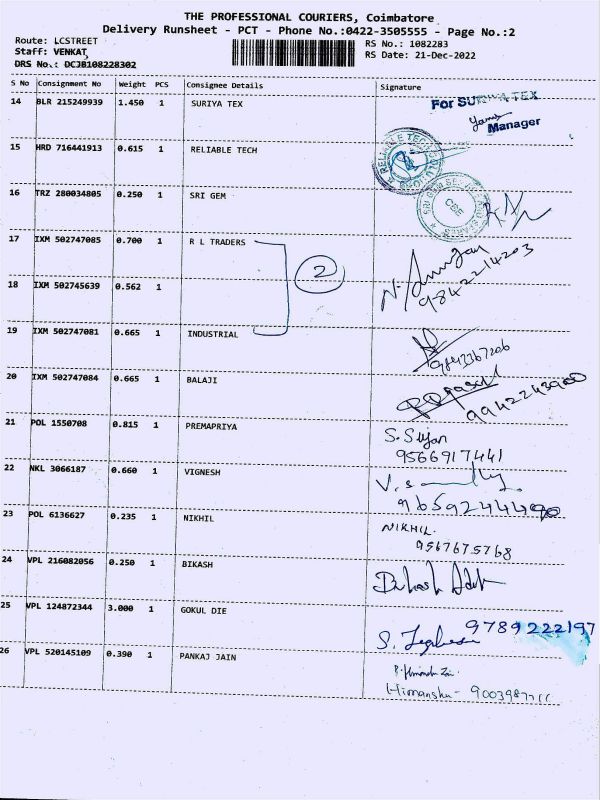 THE PROFESSIONAL COURIERS, Coimbatore
Delivery Runsheet - PCT - Phone No.:0422-3505555 - Page No.:2
Route: LCSTREET
Staff: VENKAT,
DRS No.: DCJB108228302
RS No.: 1082283
RS Date: 21-Dec-2022
S No Consignment No Weight PCS Consignee Details Signature
14 BLR 215249939 1.450 1 SURIYA TEX
For SURIYA TEX
Manager
15 HRD 716441913 0.615 1 RELIABLE TECH
RELIABLE TECH
16 TRZ 280034805 0.250 1 SRI GEM
SRI GEM
CBE
17 IXM 502747085 0.700 1 R L TRADERS
2
9842214203
18 IXM 502745639 0.562 1
19 IXM 502747081 0.665 1 INDUSTRIAL
9843367206
20 IXM 502747084 0.665 1 BALAJI
9942243900
21 POL 1550708 0.815 1 PREMAPRIYA
S. Sujan
9566917441
22 NKL 3066187 0.660 1 VIGNESH
9659244490
23 POL 6136627 0.235 1 NIKHIL
NIKHIL.
9567675768
24 VPL 216082056 0.250 1 BIKASH
25 VPL 124872344 3.000 1 GOKUL DIE
9789222197
26 VPL 520145109 0.390 1 PANKAJ JAIN
Himanshu-